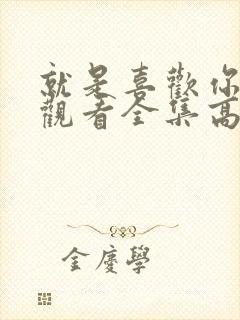 就是喜歡你
觀看全集高
金慶學